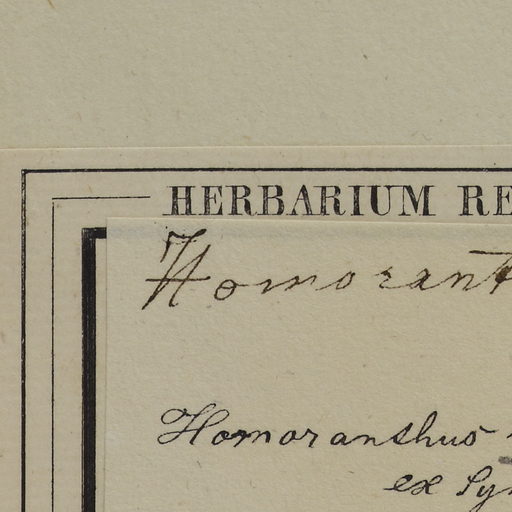 HERBARIUM RE
Homorant
Homoranthus
ex Sy